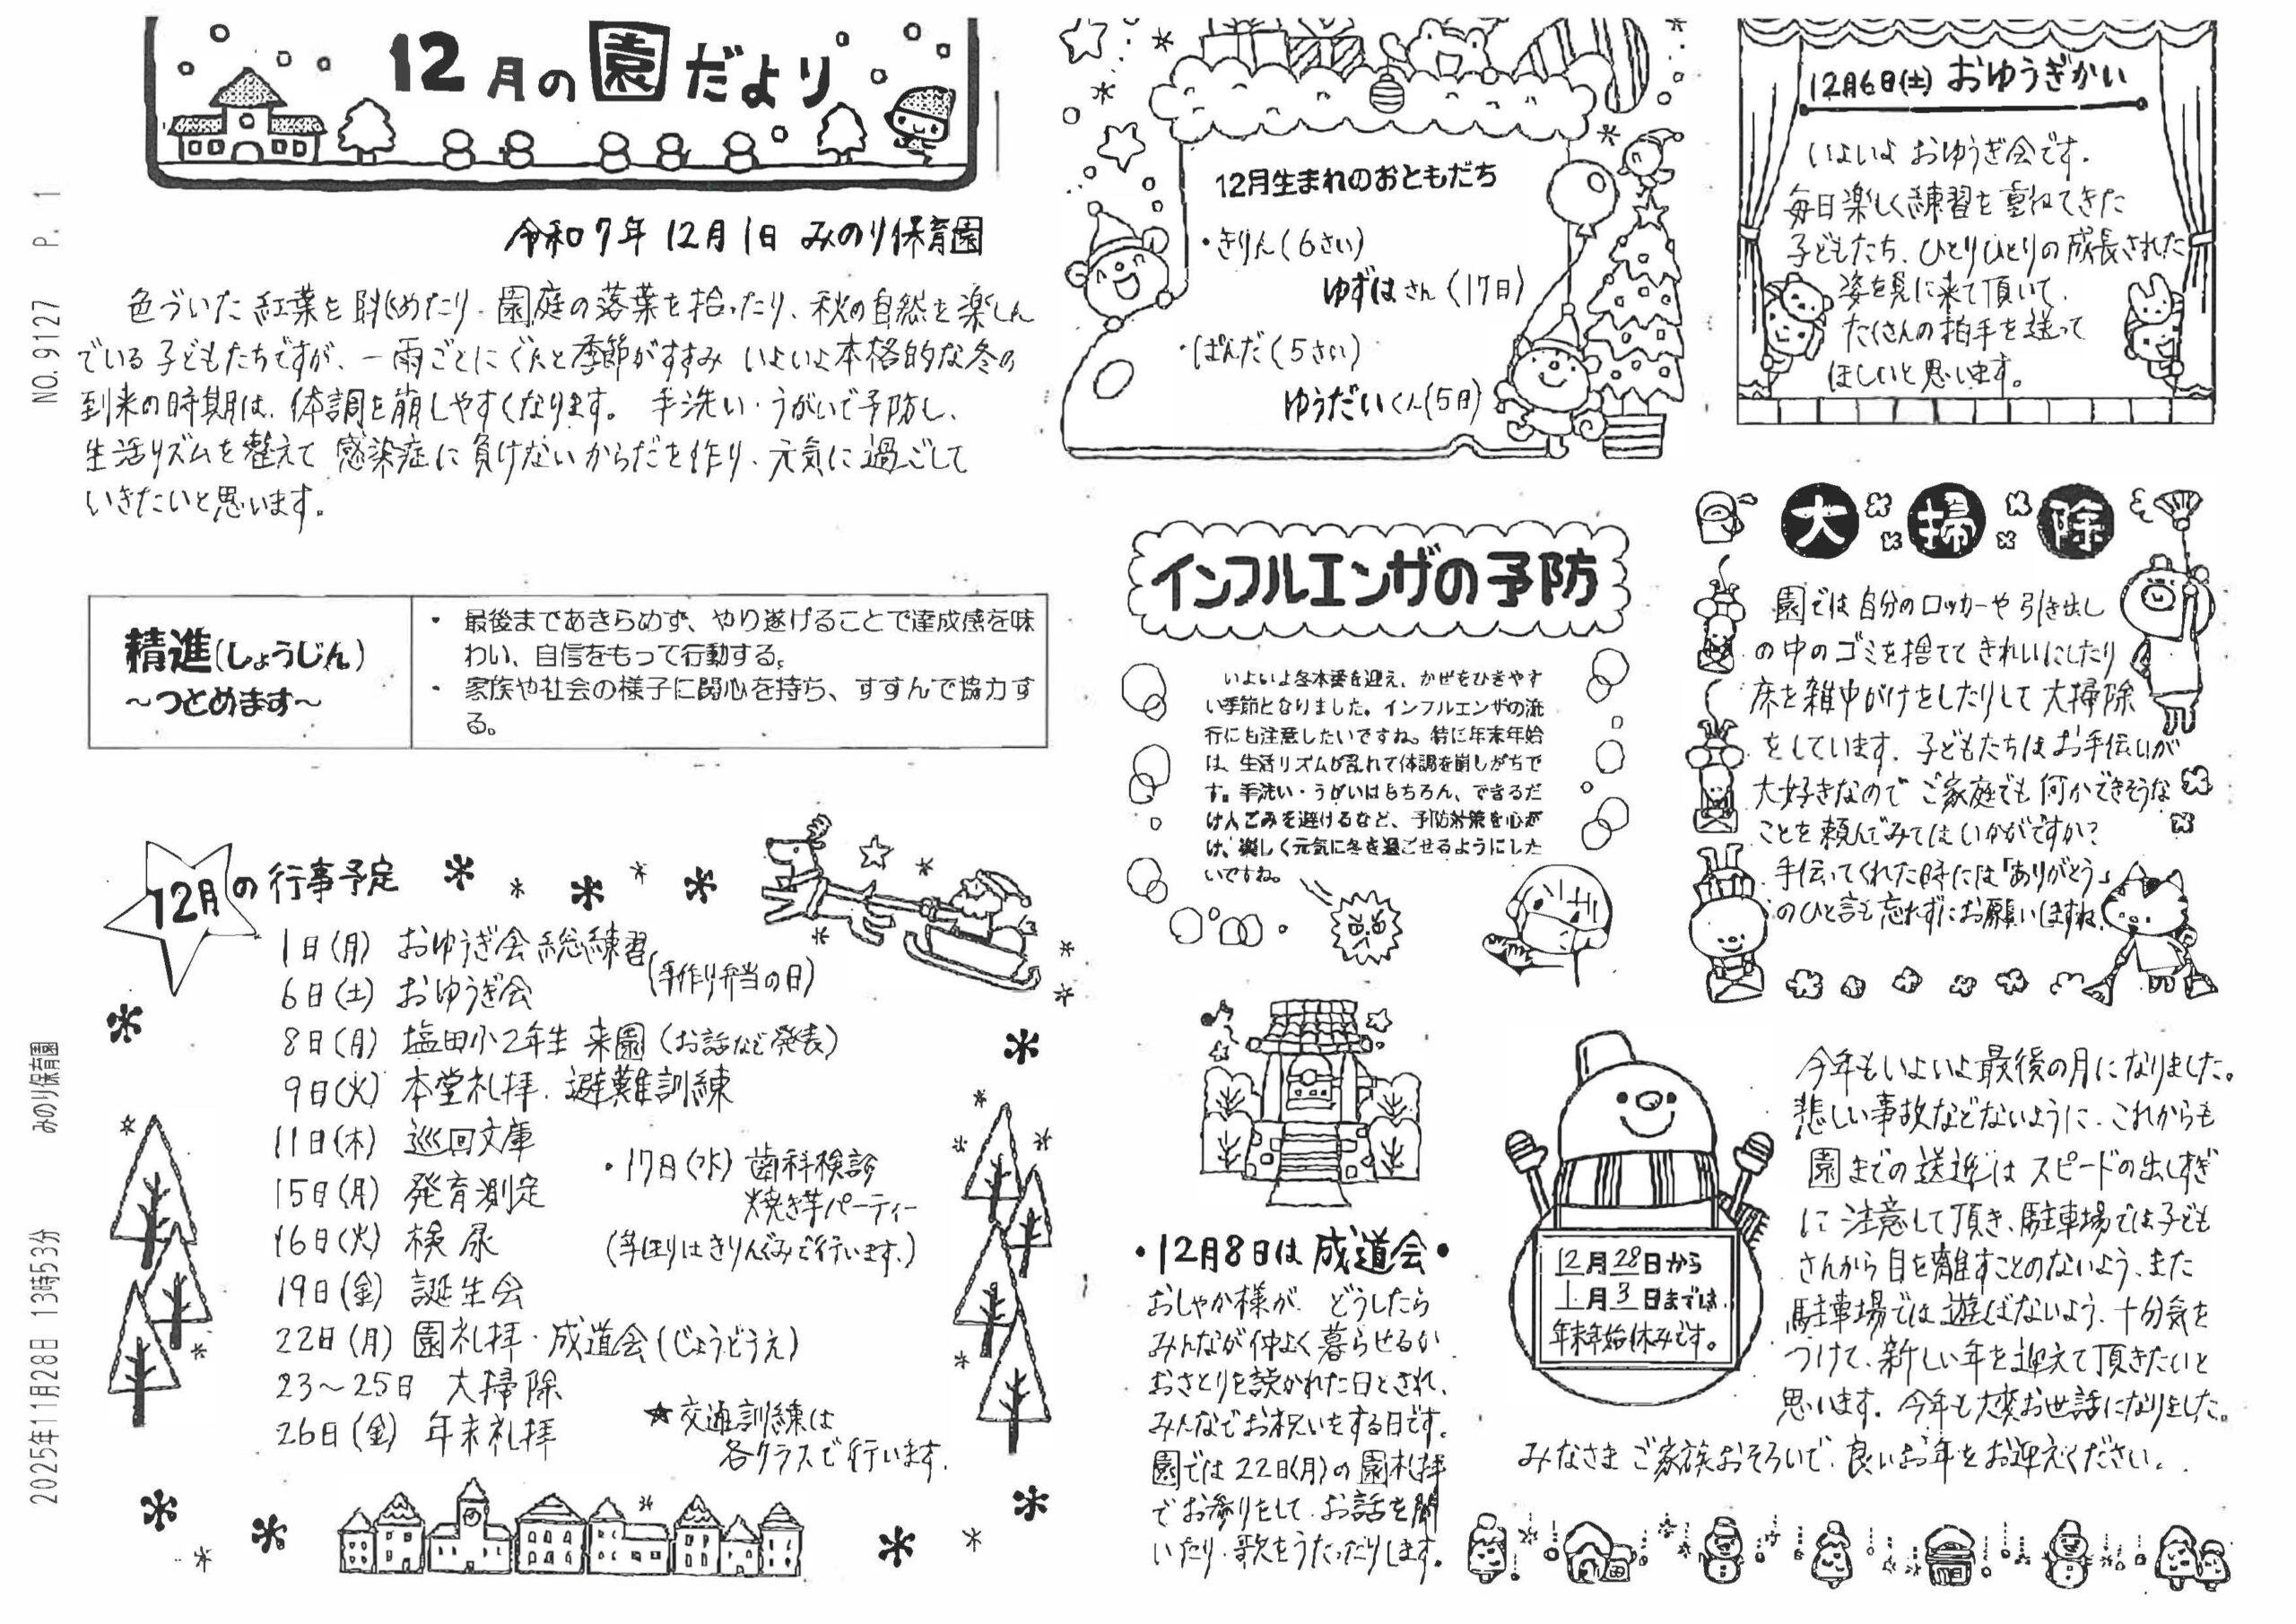 12月の園だより
令和7年 12月1日 みのり保育園
色づいた紅葉を眺めたり、園庭の落葉を拾ったり、秋の自然を楽しん
でいる子どもたちですが、一雨ごとにぐんと季節がすすみ いよいよ本格的な冬の
到来の時期は、体調を崩しやすくなります。 手洗い・うがいで予防し、
生活リズムを整えて 感染症に負けないからだを作り、元気に過ごして
いきたいと思います。
精進(しょうじん)
~つとめます~
・ 最後まであきらめず、やり遂げることで達成感を味
わい、自信をもって行動する。
・ 家族や社会の様子に関心を持ち、すすんで協力す
る。
12月の行事予定
1日(月) おゆうぎ会総練習(手作り弁当の日)
6日(土) おゆうぎ会
8日(月) 塩田小2年生 来園(お話など発表)
9日(火) 本堂礼拝・避難訓練
11日(木) 巡回文庫
15日(月) 発育測定
16日(火) 検尿
・17日(水) 歯科検診
焼き芋パーティー
(芋掘りはきりんぐみで行います。)
19日(金) 誕生会
22日(月) 園礼拝・成道会(じょうどうえ)
23~25日 大掃除
26日(金) 年末礼拝
★交通訓練は
各クラスで行います。
12月生まれのおともだち
・きりん(6さい)
ゆずはさん(17日)
・ぱんだ(5さい)
ゆうだいくん(5日)
12月6日(土) おゆうぎかい
いよいよ おゆうぎ会です。
毎日楽しく練習を重ねてきた
子どもたち、ひとりひとりの成長された
姿を見に来て頂いて、
たくさんの拍手を送って
ほしいと思います。
インフルエンザの予防
いよいよ冬本番を迎え、かぜをひきやす
い季節となりました。インフルエンザの流
行にも注意したいですね。特に年末年始
は、生活リズムが乱れて体調を崩しがちで
す。手洗い・うがいはもちろん、できるだ
け人ごみを避けるなど、予防対策を心が
け、楽しく元気に冬を過ごせるようにした
いですね。
大掃除
園では自分のロッカーや引き出し
の中のゴミを捨てて きれいにしたり
床を雑巾がけをしたりして大掃除
をしています。子どもたちはお手伝いが
大好きなので ご家庭でも何かできそうな
ことを頼んでみてはいかがですか?
手伝ってくれた時には「ありがとう」
のひと言も忘れずにお願いしますね。
・12月8日は 成道会・
おしゃか様が、どうしたら
みんなが仲よく暮らせるか
おさとりを説かれた日とされ、
みんなでお祝いをする日です。
園では22日(月)の園礼拝
でお参りをして、お話を聞
いたり、歌をうたったりします。
12月28日から
1月3日までは、
年末年始休みです。
今年もいよいよ最後の月になりました。
悲しい事故などないように、これからも
園までの送迎は スピードの出しすぎ
に注意して頂き、駐車場では子ども
さんから目を離すことのないよう、また
駐車場では遊ばないよう、十分気を
つけて、新しい年を迎えて頂きたいと
思います。今年も大変お世話になりました。
みなさま ご家族おそろいで、良いお年をお迎えください。
2025年11月28日 13時53分 みのり保育園 NO. 9127 P. 1